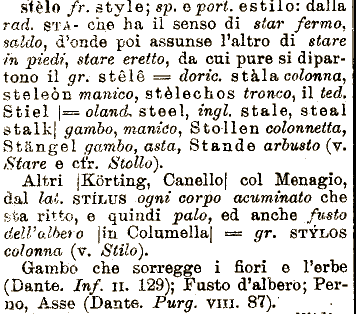 stèlo fr. style; sp. e port. estilo: dalla
rad. STA- che ha il senso di star fermo,
saldo, d'onde poi assunse l'altro di stare
in piedi, stare eretto, da cui pure si dipar-
tono il gr. stêlê = doric. stàla colonna,
steleòn manico, stèlechos tronco, il ted.
Stiel |= oland. steel, ingl. stale, steal
stalk| gambo, manico, Stollen colonnetta,
Stängel gambo, asta, Stande arbusto (v.
Stare e cfr. Stollo).
Altri |Körting, Canello| col Menagio,
dal lat. STĬLUS ogni corpo acuminato che
sta ritto, e quindi palo, ed anche fusto
dell'albero |in Columella| = gr. STÝLOS
colonna (v. Stilo).
Gambo che sorregge i fiori e l'erbe
(Dante. Inf. II. 129); Fusto d'albero; Per-
no, Asse (Dante. Purg. VIII. 87).